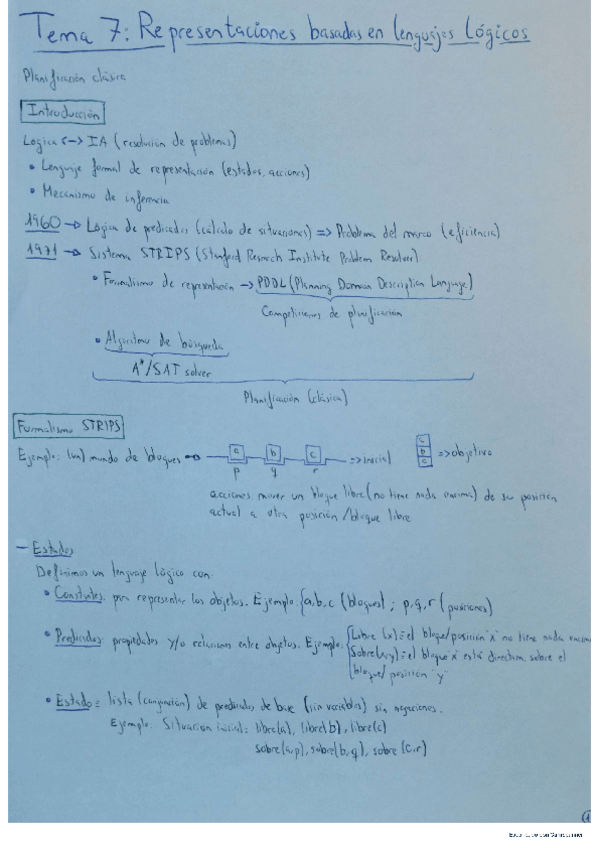 Tema 7: Representaciones basadas en lenguajes Lógicos
Planificación clásica
Introducción
Logica <-> IA (resolución de problemas)
• Lenguaje formal de representación (estados, acciones)
• Mecanismo de inferencia
1960 -> Lógica de predicados (cálculo de situaciones) => Problema del marco (eficiencia)
1971 -> Sistema STRIPS (Stanford Research Institute Problem Resolver)
• Formalismo de representación -> PDDL (Planning Domain Description Language)
Competiciones de planificación
• Algoritmo de búsqueda
A*/SAT solver
Planificación (clásica)
Formalismo STRIPS
Ejemplo: (un) mundo de bloques
a b c => inicial
p q r
c
b
c
=> objetivo
acciones: mover un bloque libre (no tiene nada encima) de su posición
actual a otra posición/bloque libre
- Estados
Definimos un lenguaje lógico con:
• Constantes: para representar los objetos. Ejemplo: {a,b,c (bloques) ; p,q,r (posiciones)
• Predicados: propiedades y/o relaciones entre objetos. Ejemplo: {Libre (x) = el bloque/posición "x" no tiene nada encima
Sobre(x,y) = el bloque "x" está directam. sobre el
bloque/posición "y"
• Estado = lista (conjunción) de predicados de base (sin variables) sin negaciones.
Ejemplo: Situación inicial: libre(a), libre(b), libre(c)
sobre(a,p), sobre(b,q), sobre(c,r)
1